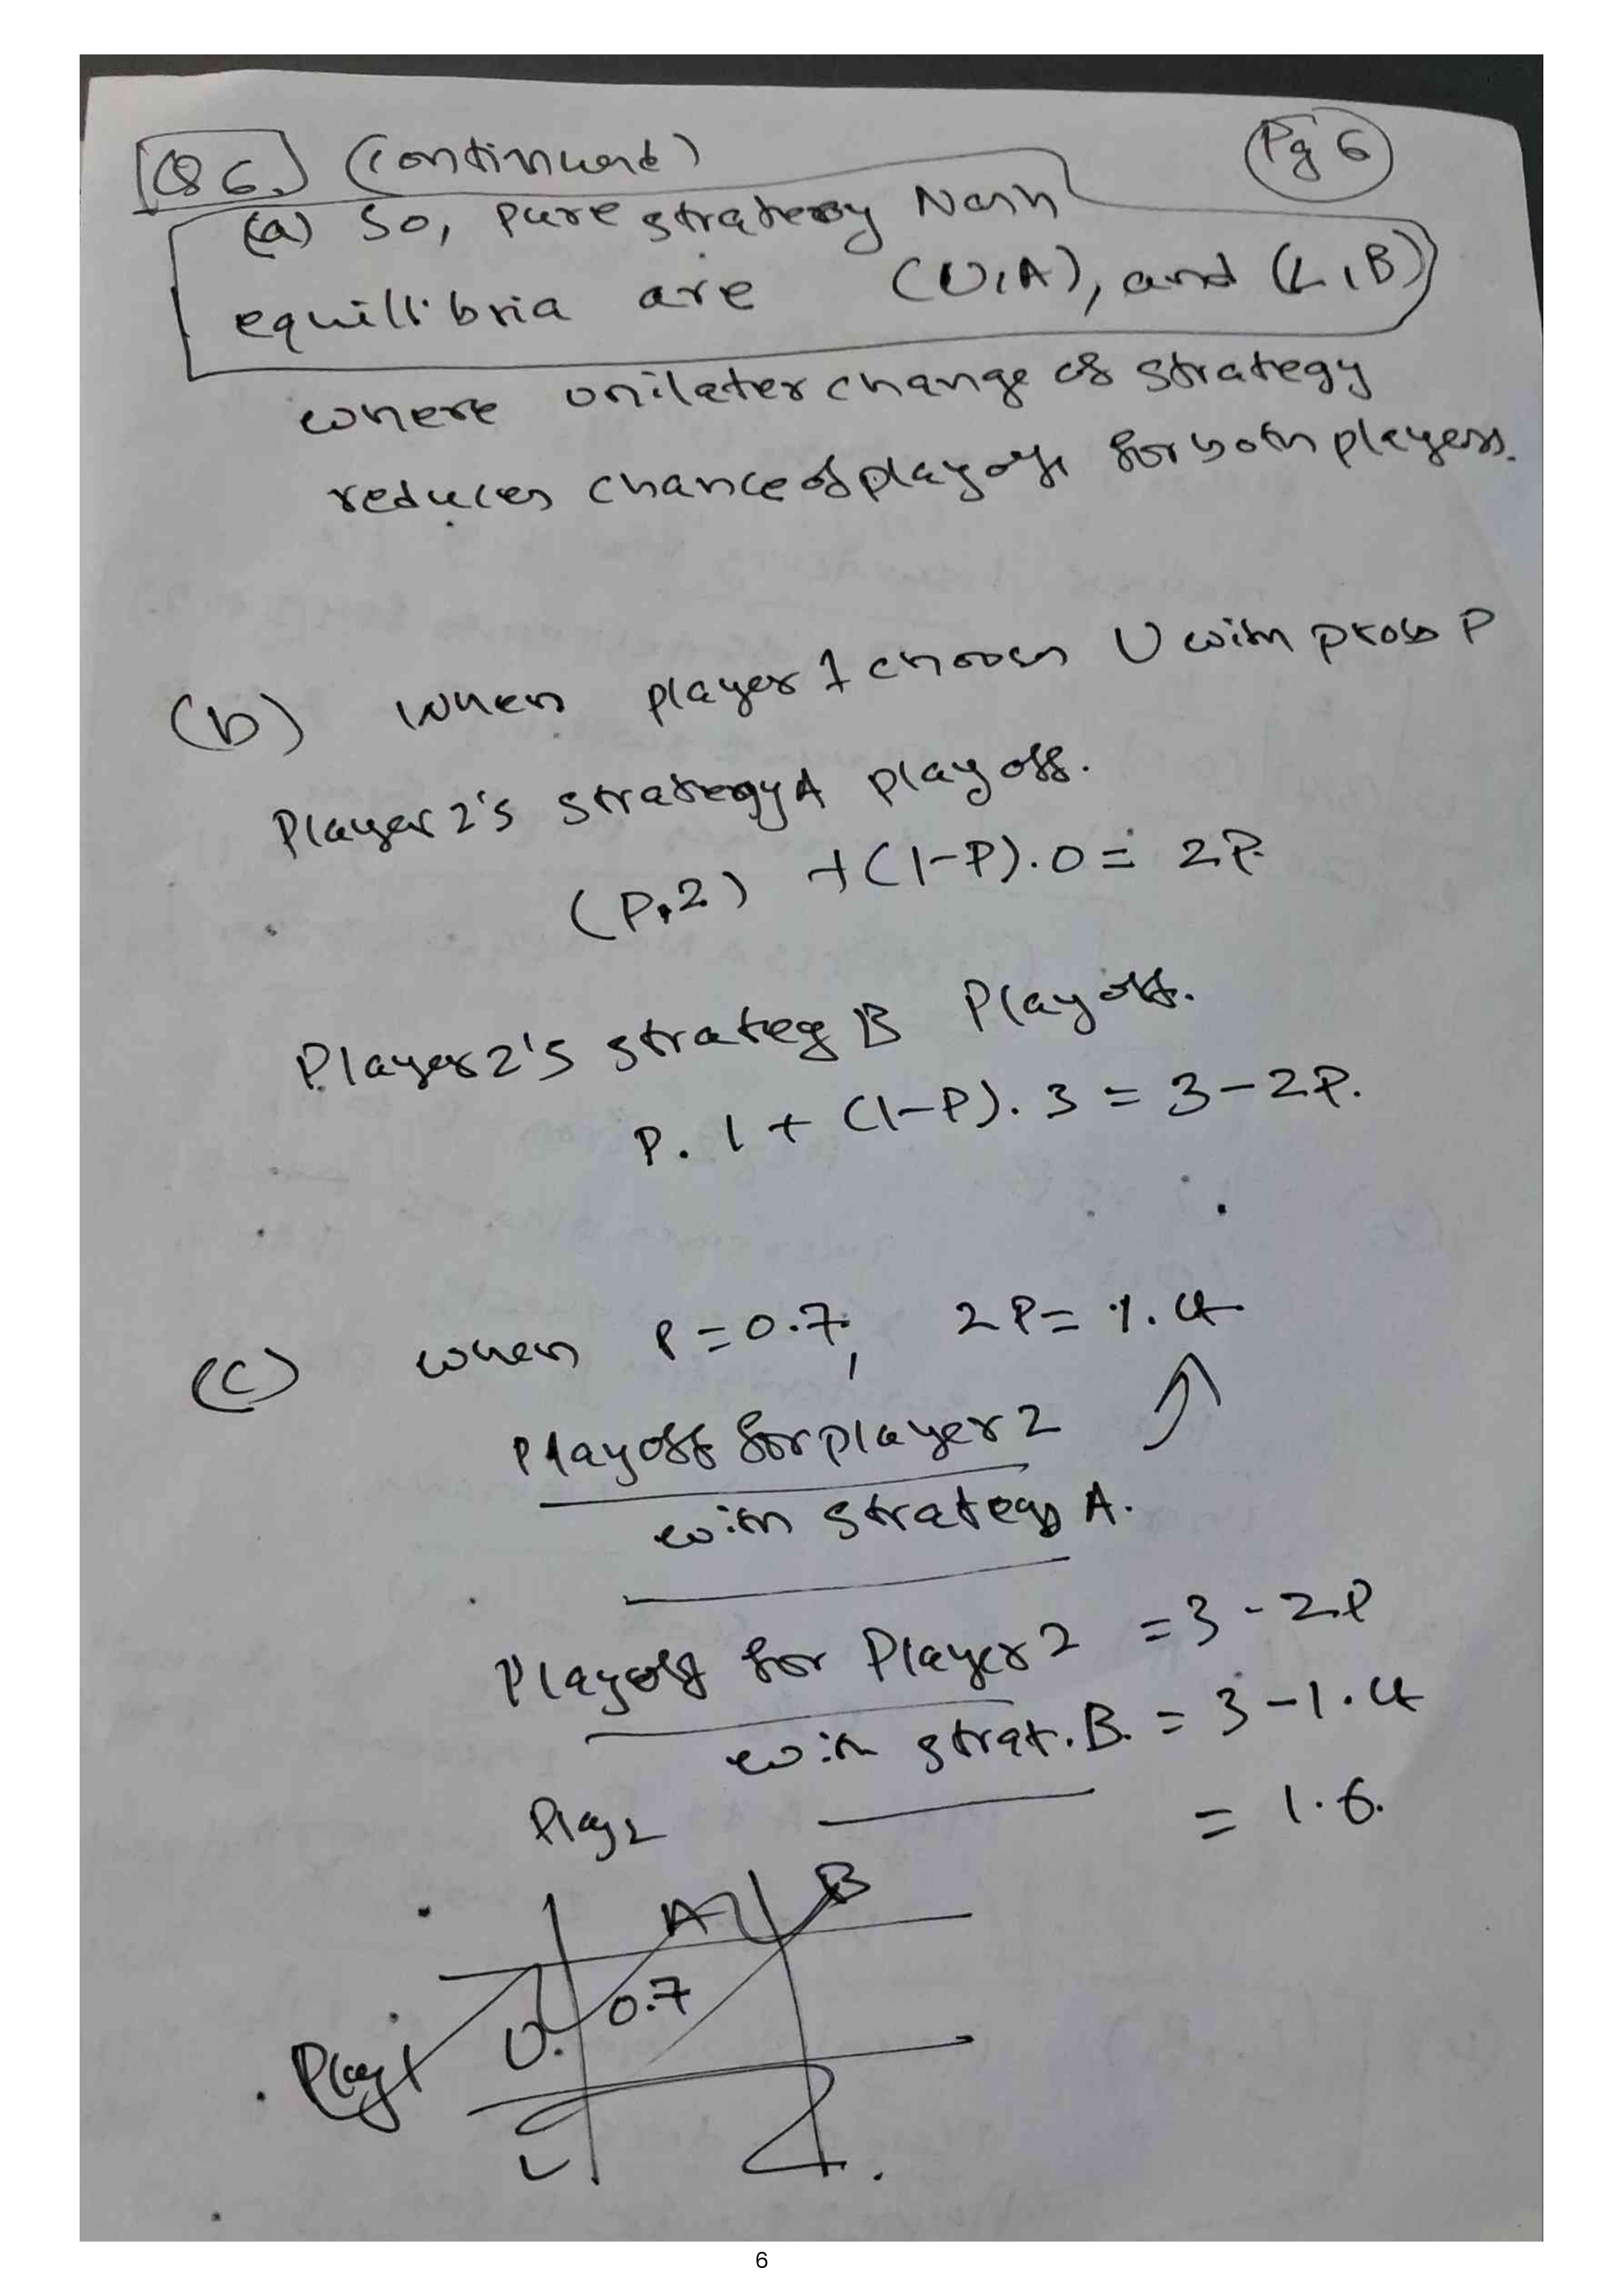 Q6. (Continued)
Pg 6
(a) So, pure strategy Nash
equillibria are (U,A), and (L,B)
where unilater change of strategy
reduces chance of playoff for both players.
(b) When player 1 chooses U with prob P
Player 2's strategy A playoff.
(P.2) + (1-P).0 = 2P
Player 2's strateg B Playoff.
P.1 + (1-P).3 = 3-2P.
(c) when P=0.7, 2P= 1.4
Playoff for player 2
with strategy A.
Playoff for Player 2 = 3-2P
with strat. B. = 3-1.4
= 1.6.
Play 2
A B
Play 1 U. 0.7
L
6